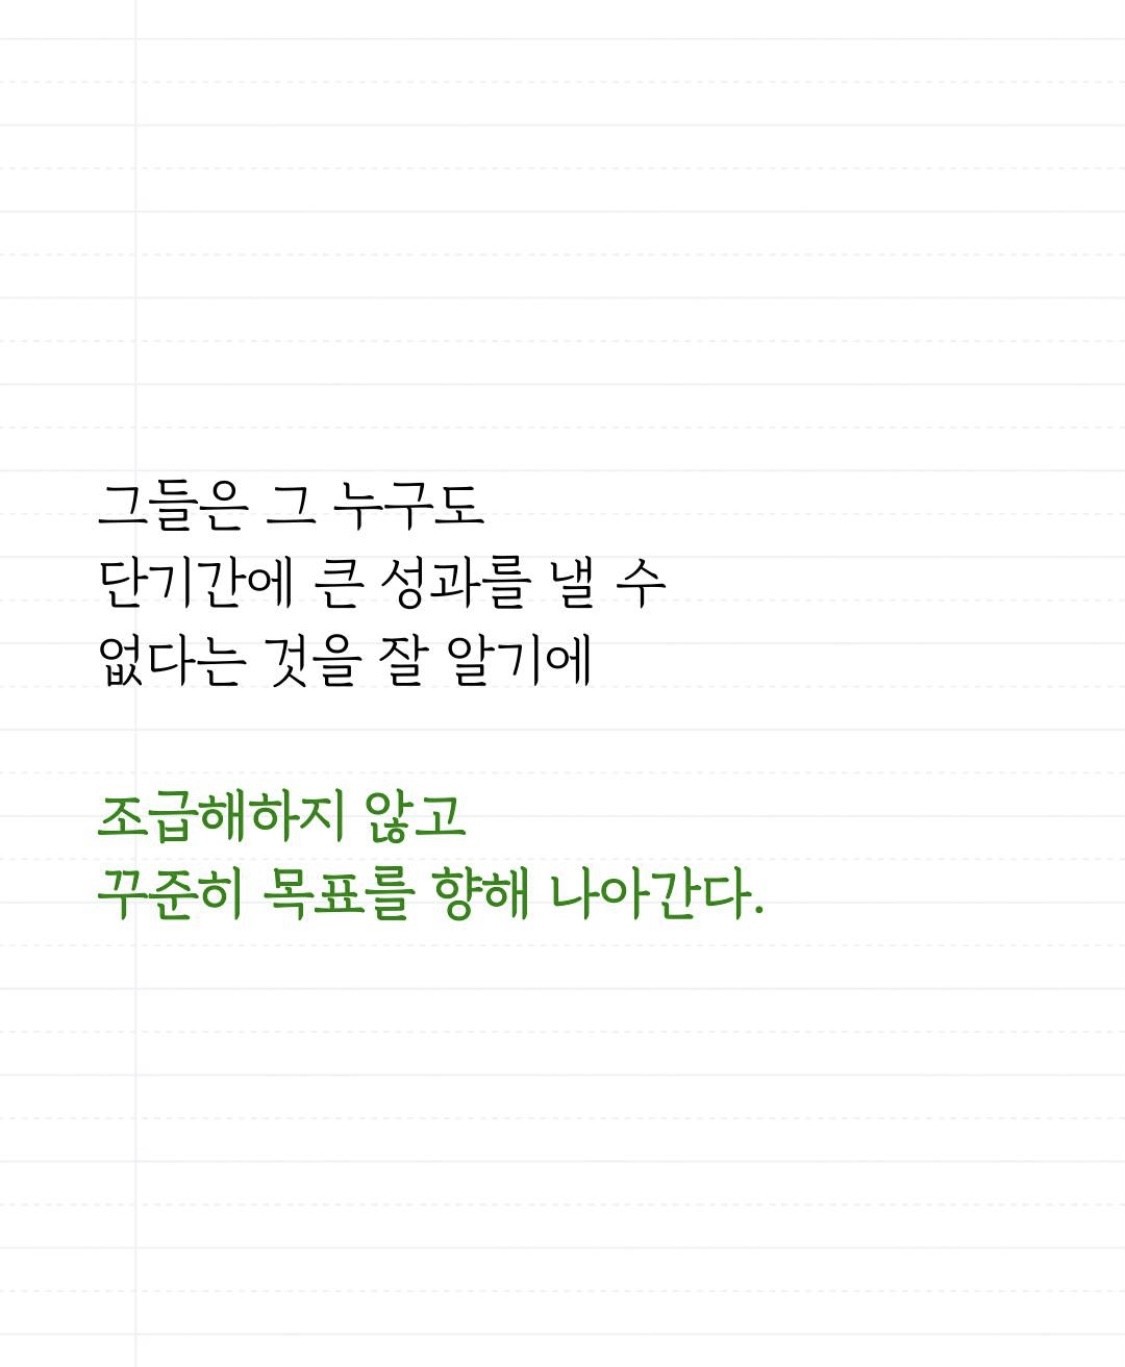 그들은 그 누구도
단기간에 큰 성과를 낼 수
없다는 것을 잘 알기에
조급해하지 않고
꾸준히 목표를 향해 나아간다.